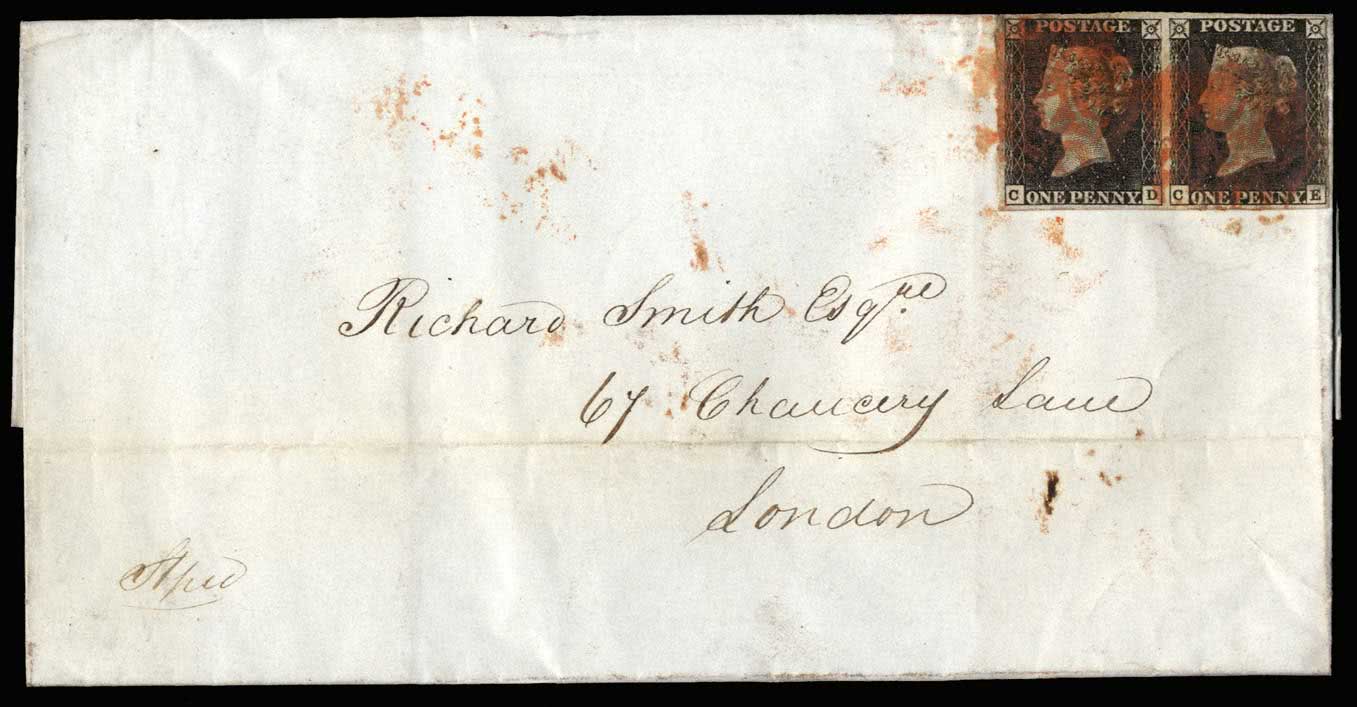 POSTAGE POSTAGE
C ONE PENNY. D C ONE PENNY. E
Richard Smith Esqre.
67 Chancery Lane
London